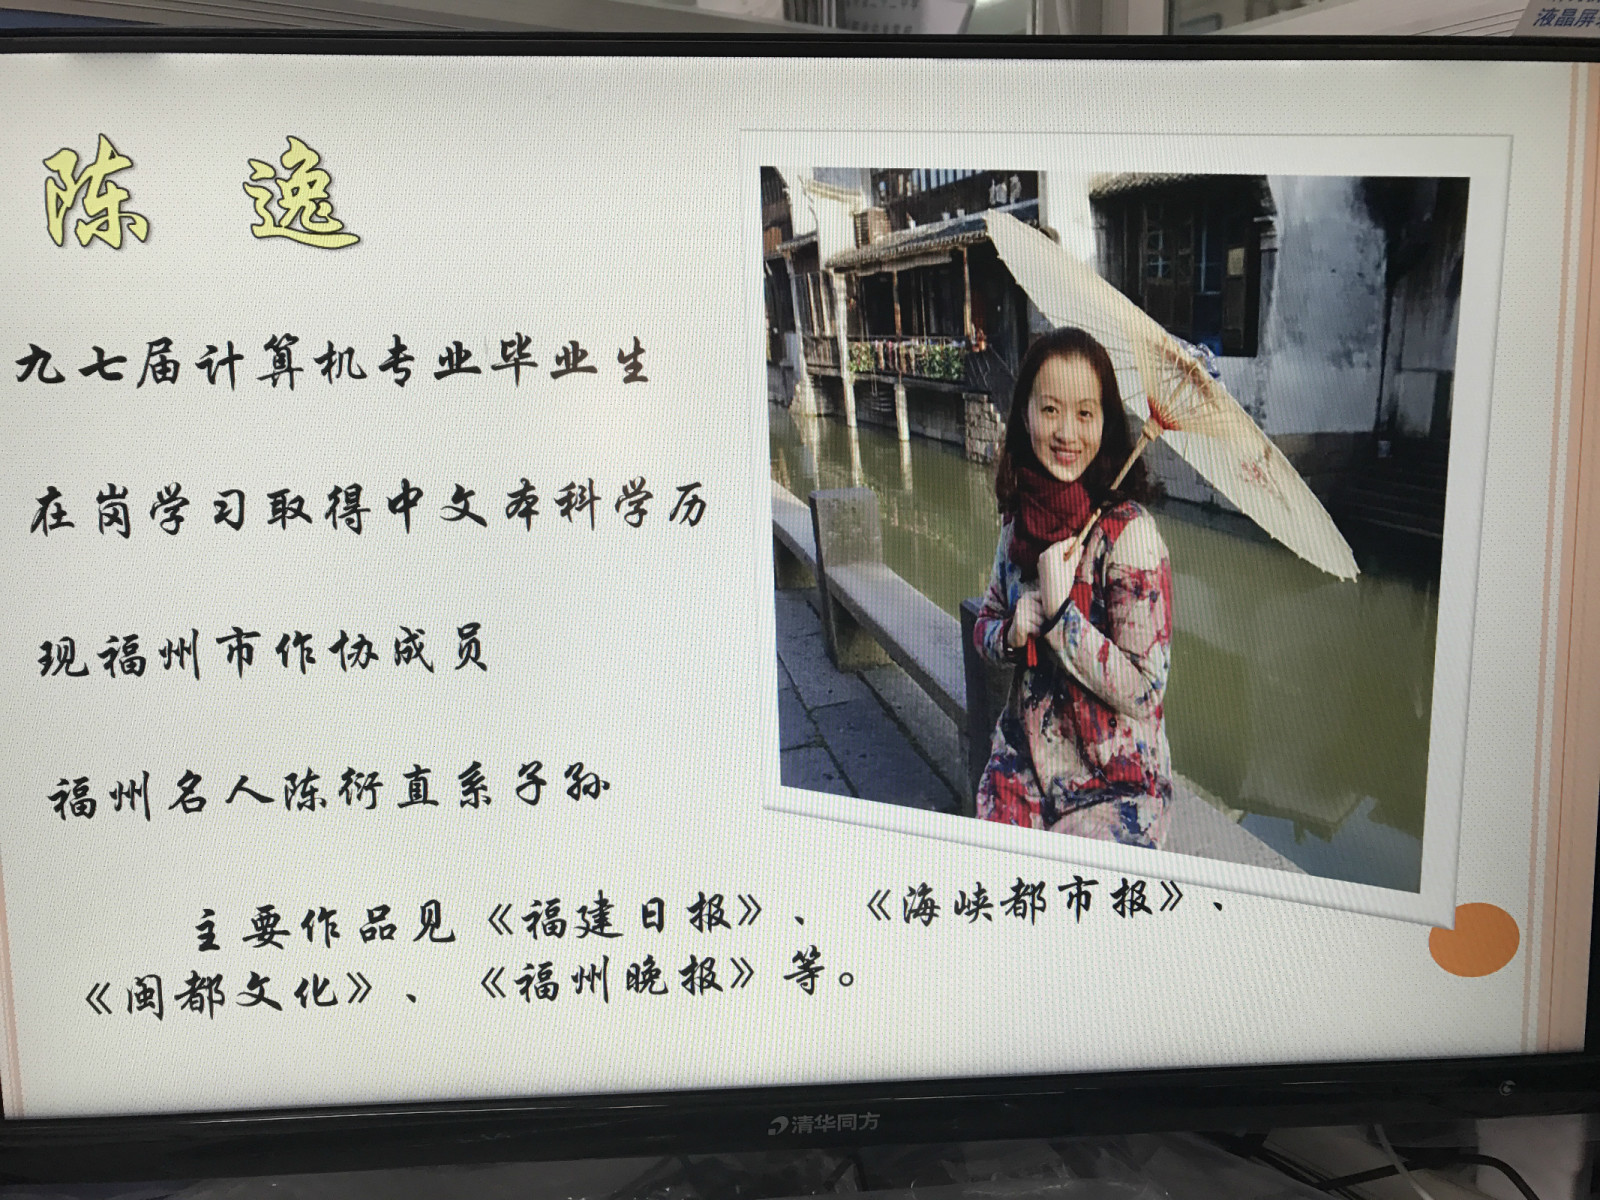 液晶屏
陈 逸
九七届计算机专业毕业生
在岗学习取得中文本科学历
现福州市作协成员
福州名人陈衍直系子孙
主要作品见《福建日报》、《海峡都市报》、
《闽都文化》、《福州晚报》等。
清华同方